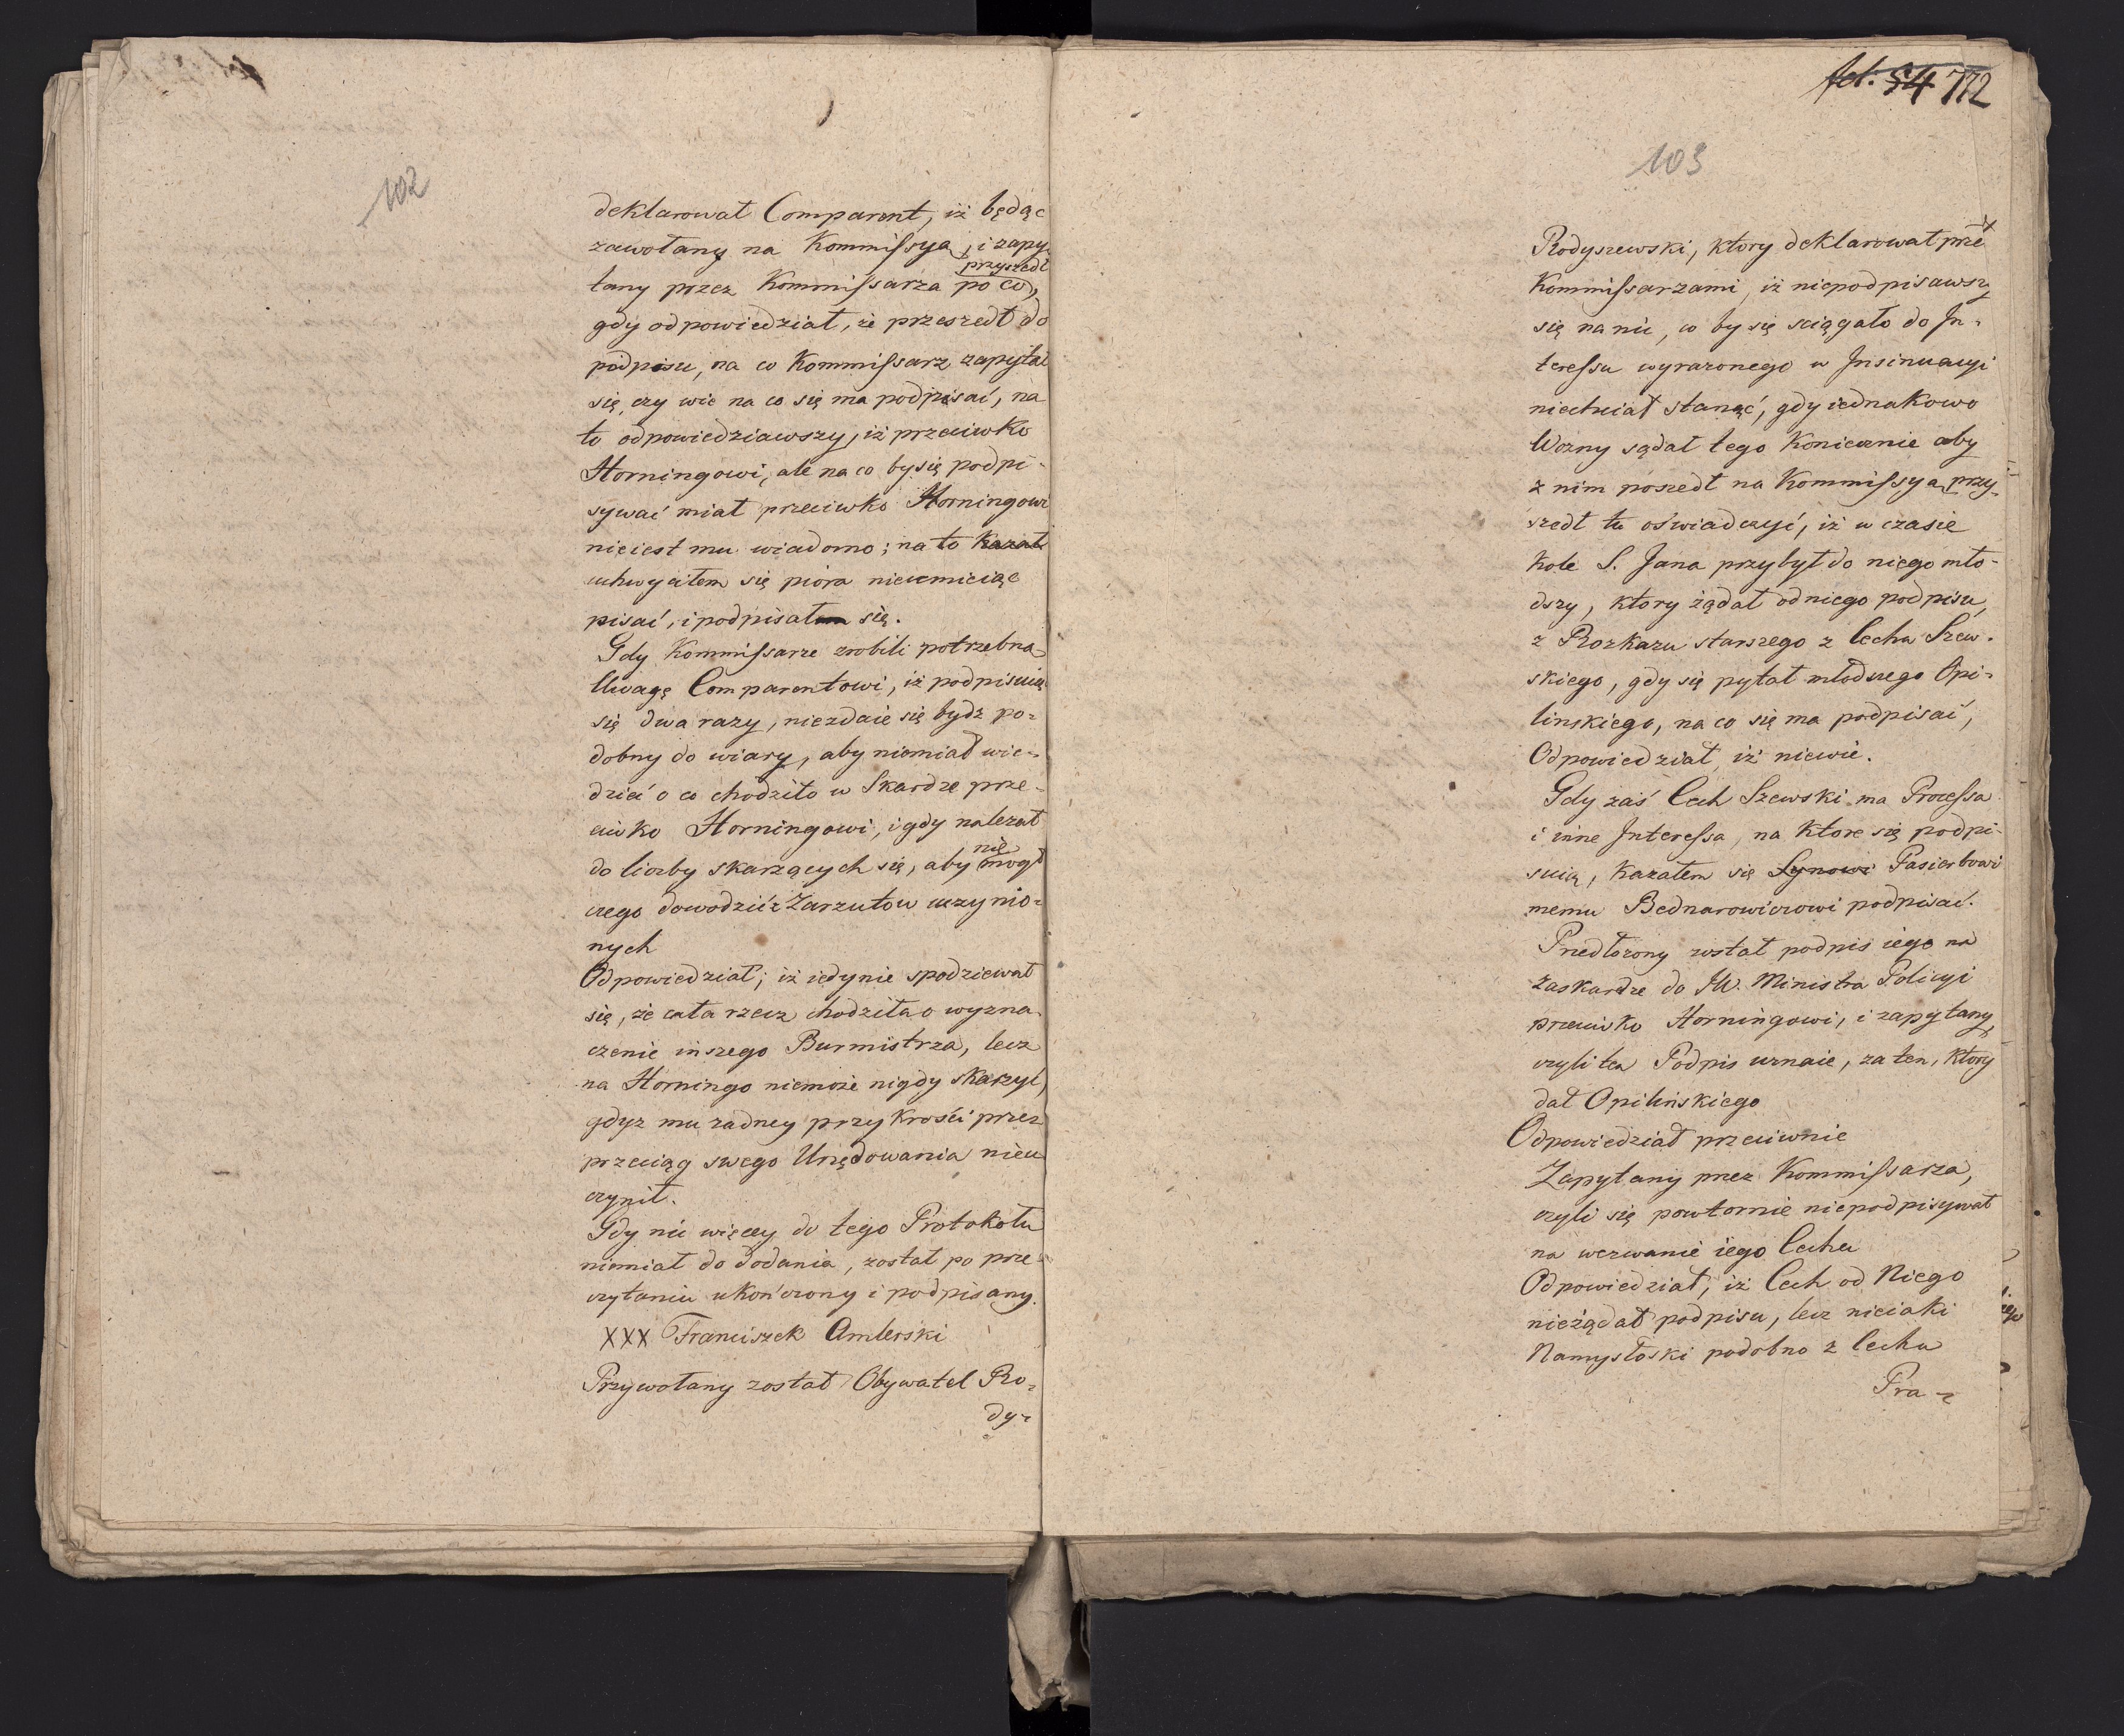 102
deklarował Comparent, iż będąc
zawołany na Kommissyą, i zapy-
przyszedł
tany przez Kommissarza po co,
gdy odpowiedział, że przeszedł do
podpisu, na co Kommissarz zapytał
się, czy wie na co się ma podpisać, na
to odpowiedziawszy, iż przeciwko
Horningowi, ale na co by się podpi-
sywać miał przeciwko Horningowi
nieiest mu wiadomo; na to kazał
uchwyciłem się pióra nieumieiąc
pisać, i podpisałem się.
Gdy Kommissarze zrobili potrzebną
Uwagę Comparentowi, iż podpisuiąc
się dwa razy, niezdaie się bydz po-
dobny do wiary, aby niemiał wie-
dzieć o co chodziło w Skardze prze-
ciwko Horningowi, i gdy należał
nie
do liczby skarzących się, aby mogł
czego dowodzić z Zarzutow uczynio-
nych
Odpowiedział; iż iedynie spodziewał
się, że cała rzecz chodziła o wyzna-
czenie inszego Burmistrza, lecz
na Horningo niemoże nigdy skarzyć,
gdyz mu zadney przykrości przez
przeciąg swego Urzędowania nieu-
czynił.
Gdy nic więcey do tego Protokołu
niemiał do dodania, został po prze-
czytaniu ukończony i podpisany.
XXX Franciszek Amlerski
Przywołany został Obywatel Ro-
dy-
fol: 54 112
103
Rodyszewski, ktory deklarował przed
Kommissarzami, iż niepodpisawszy
się na nic, co by się sciągało do In-
teressu wyrazonego w Insinuacyi
niechciał stanąć, gdy iednakowo
Wozny ządał tego koniecznie aby
z nim poszedł na Kommissyą, przy-
szedł tu oświadczyć, iż w czasie
kole S. Jana przybył do niego mło-
dszy, ktory żądał od niego podpisu,
z Rozkazu starszego z Cechu Szew-
skiego, gdy się pytał młodszego Opi-
linskiego, na co się ma podpisać,
Odpowiedział, iż niewie.
Gdy zaś Cech Szewski ma Processa
i inne Interessa, na ktore się podpi-
suią, kazałem się Synowi Pasierbowi
memu Bednarowiczowi podpisać.
Przedłozony został podpis iego na
zaskardze do JW. Ministra Policyi
przeciwko Horningowi, i zapytany,
czyli ten Podpis uznaie, za ten, ktory
dał Opilińskiego
Odpowiedział przeciwnie
Zapytany przez Kommissarza,
czyli się powtornie niepodpisywał
na wezwanie iego Cechu
Odpowiedział, iż Cech od Niego
nieżądał podpisu, lecz nieiaki
Namysłoski podobno z Cechu
Pra-